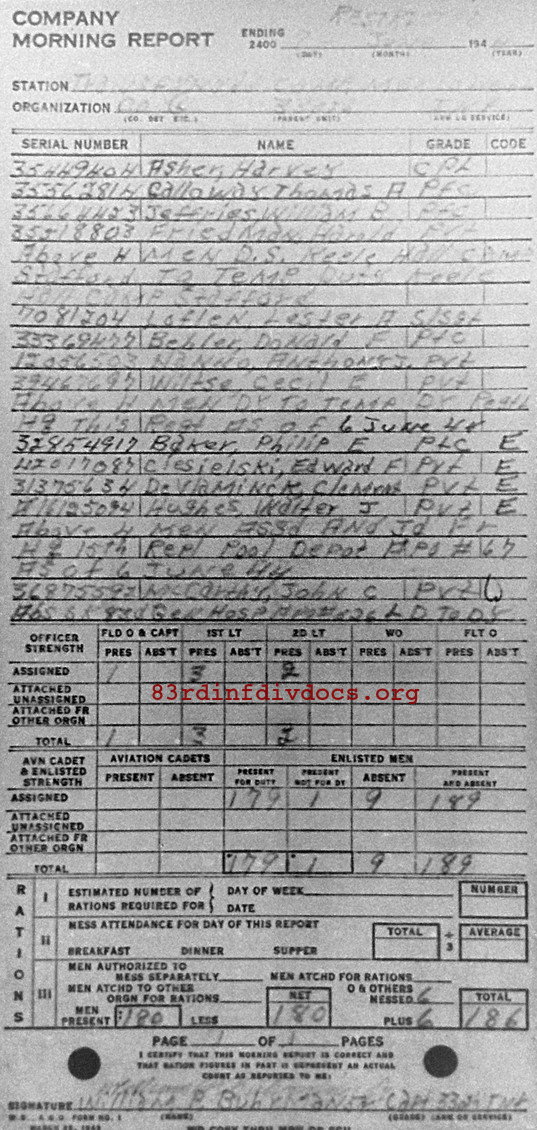 COMPANY
MORNING REPORT
ENDING
2400
(DAY) (MONTH) 194 (YEAR)
STATION
ORGANIZATION
(CO. DET. ETC.) (PARENT UNIT) (ARM OR SERVICE)
SERIAL NUMBER NAME GRADE CODE
35449404 Asher, Harvey Cpl
35562814 Callaway Thomas A Pfc
35664423 Jeffries William B Pfc
35218803 Friedman, Harold Pvt
Above 4 Men D.S. Keele Hall Camp
Stafford To Temp Duty Keele
Hall Camp Stafford
7081204 Loflen Lester A S/Sgt
35369477 Behler, Donald F Pfc
12056503 Nanno, Anthony J. Pvt
39467697 Wiltse, Cecil E Pvt
Above 4 Men Dy To Temp Dy
Hq This Regt As of 6 June 44
32854917 Baker, Philip E Pfc E
42017087 Ciesielski, Edward F Pvt E
31375634 DeVlaminck, Clement Pvt E
16125094 Hughes, Walter J Pvt E
Above 4 Men Assd And Jd Fr
Hq 15th Repl Pool Depot APO #67
As of 6 June 44
36875592 McCarthy, John C Pvt
Abs Sk 83d Gen Hosp LD To Dy
OFFICER STRENGTH FLD O & CAPT 1ST LT 2D LT WO FLT O
PRES ABS'T PRES ABS'T PRES ABS'T PRES ABS'T PRES ABS'T
ASSIGNED 1 3 2
ATTACHED UNASSIGNED
ATTACHED FR OTHER ORGN
83rdinfdivdocs.org
TOTAL 1 3 2
AVN CADET & ENLISTED STRENGTH AVIATION CADETS ENLISTED MEN
PRESENT ABSENT PRESENT FOR DUTY PRESENT NOT FOR DY ABSENT PRESENT AND ABSENT
ASSIGNED 179 1 9 189
ATTACHED UNASSIGNED
ATTACHED FR OTHER ORGN
TOTAL 179 1 9 189
RATIONS
I ESTIMATED NUMBER OF RATIONS REQUIRED FOR DAY OF WEEK DATE NUMBER
II MESS ATTENDANCE FOR DAY OF THIS REPORT
BREAKFAST DINNER SUPPER TOTAL ÷ 3 AVERAGE
III MEN AUTHORIZED TO MESS SEPARATELY MEN ATCHD FOR RATIONS
MEN ATCHD TO OTHER ORGN FOR RATIONS NET O & OTHERS MESSED 6 TOTAL
MEN PRESENT 180 LESS 180 PLUS 6 186
PAGE 1 OF 1 PAGES
I CERTIFY THAT THIS MORNING REPORT IS CORRECT AND
THAT RATION FIGURES IN PART III REPRESENT AN ACTUAL
COUNT AS REPORTED TO ME:
SIGNATURE
(NAME) (GRADE) (ARM OR SERVICE)
FORM NO. 1